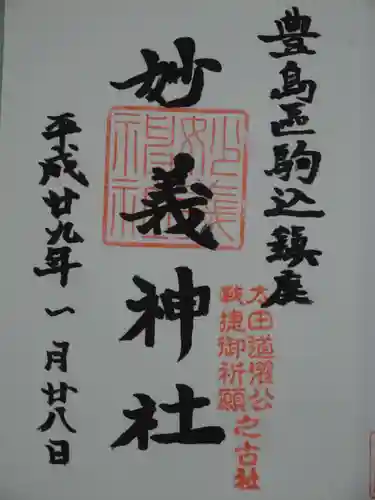 豊島区駒込鎮座
太田道灌公
戦捷御祈願之古社
妙義神社
平成廿九年一月廿八日